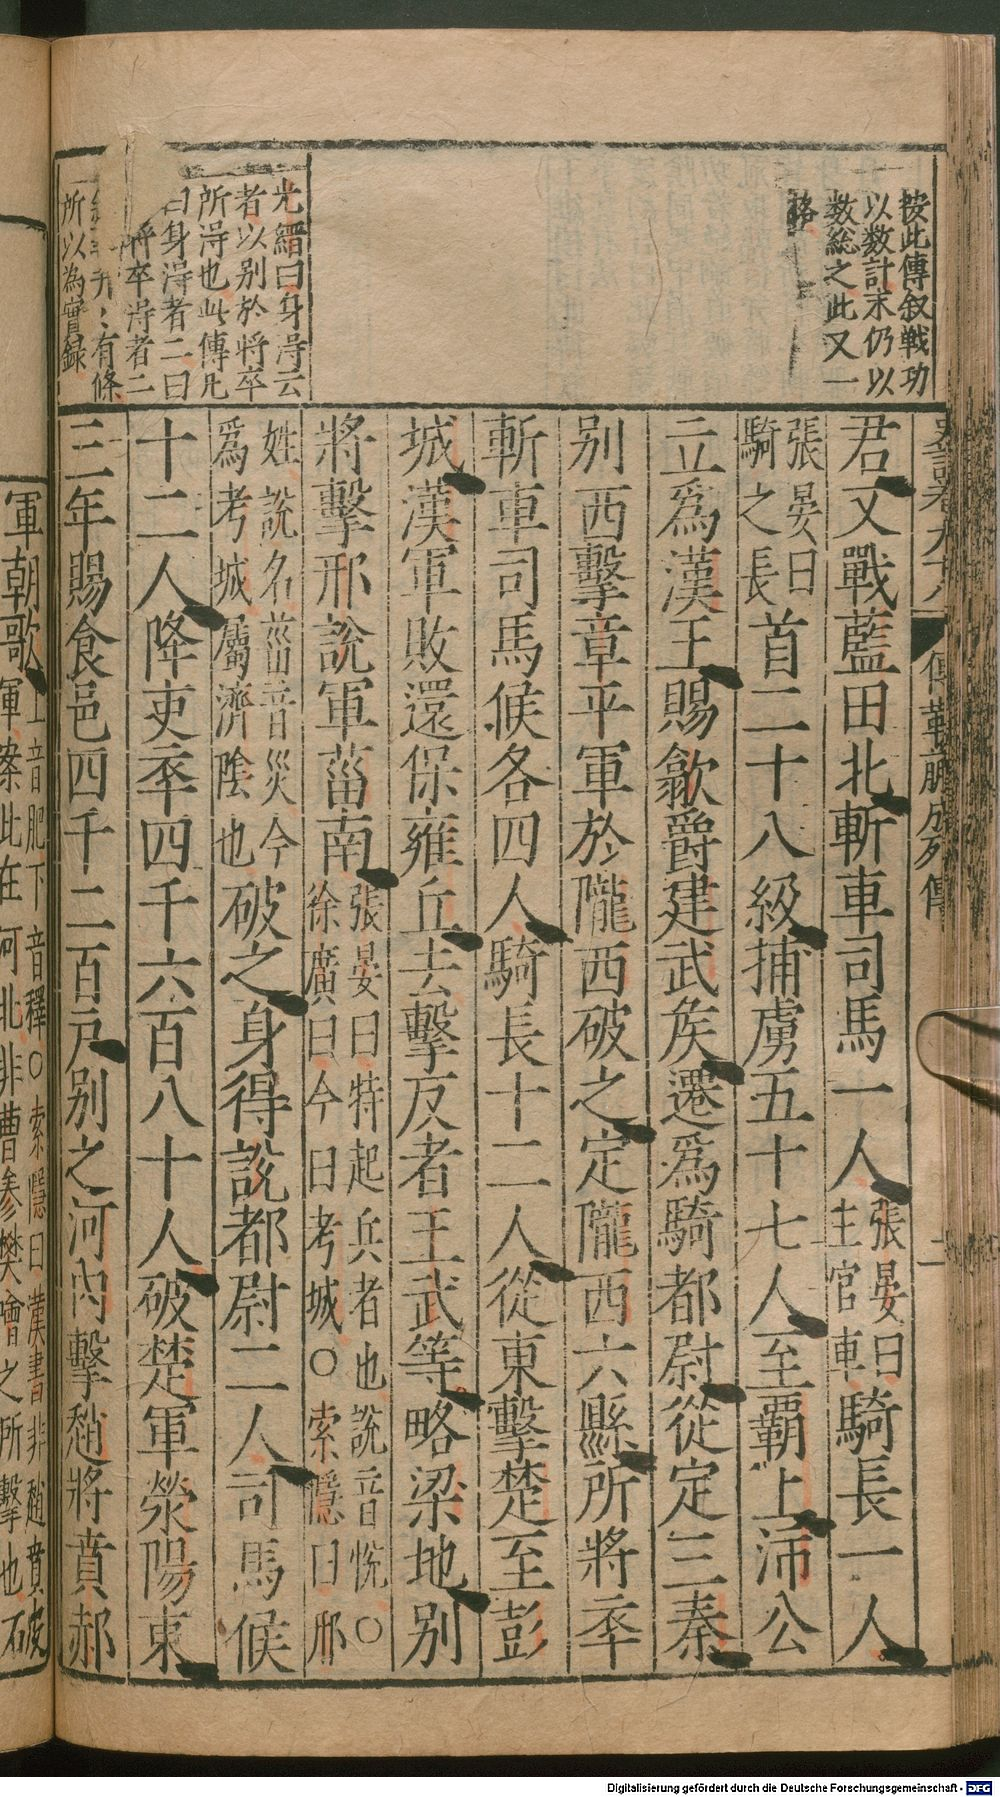 按此傳叙戰功
以數計末仍以
數總之此又一
格
光縉曰身淂云
者以別於將卒
所淂也此傳凡
曰身淂者二曰
將卒淂者二
有條
所以為實録
史記卷九十八 傅靳蒯成列傳 二
君又戰藍田北斬車司馬一人張晏曰主官車騎長一人
張晏曰騎之長首二十八級捕虜五十七人至覇上沛公
立爲漢王賜歙爵建武侯遷爲騎都尉從定三秦
别西擊章平軍於隴西破之定隴西六縣所將卒
斬車司馬候各四人騎長十二人從東擊楚至彭
城漢軍敗還保雍丘去擊反者王武等略梁地别
將擊邢說軍菑南張晏曰特起兵者也說音悅○徐廣曰今曰考城○索隱曰邢
姓說名菑音災今爲考城屬濟陰也破之身得說都尉二人司馬候
十二人降吏卒四千六百八十人破楚軍滎陽東
三年賜食邑四千二百户别之河内擊趙將賁郝
軍朝歌上音肥下音釋○索隱曰漢書非趙賁
軍案此在河北非曹參樊噲之所擊也
Digitalisierung gefördert durch die Deutsche Forschungsgemeinschaft - DFG